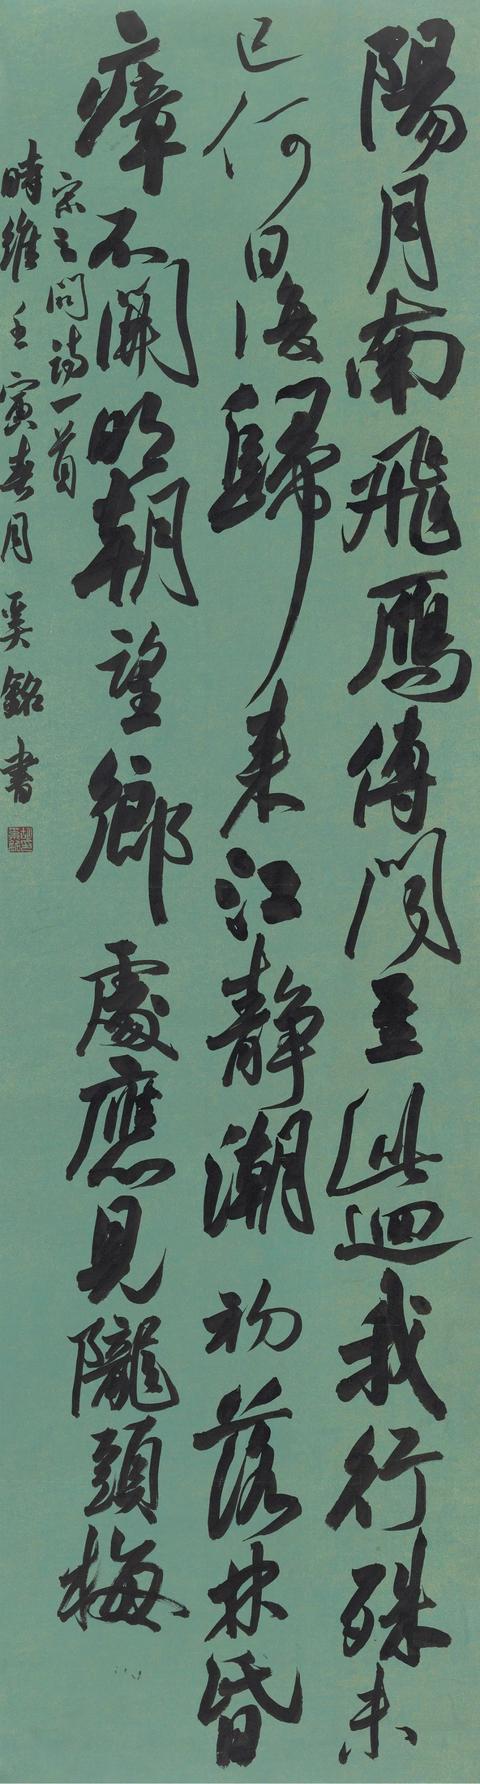 陽月南飛雁傳聞至此迴我行殊未
已何日復歸來江靜潮初落林昏
瘴不開明朝望鄉處應見隴頭梅
宋之問詩一首
時維壬寅春月奚銘書